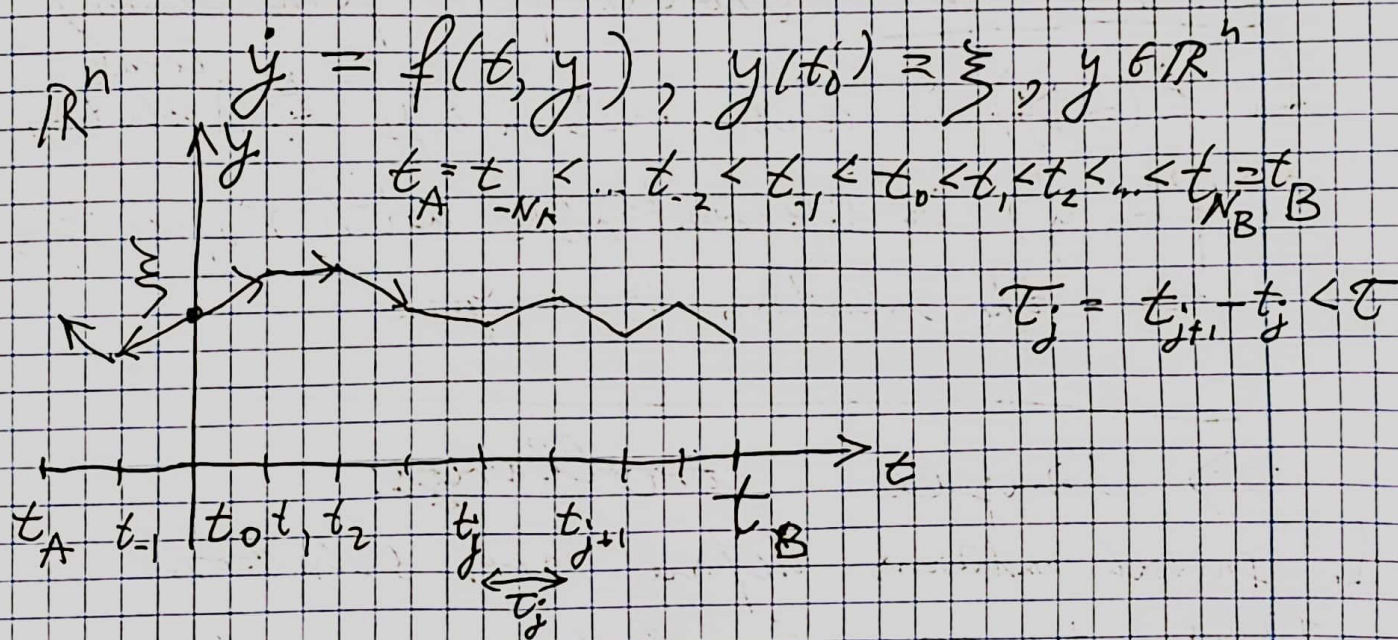 ẏ = f(t, y), y(t₀) = ξ, y ∈ ℝⁿ
ℝⁿ
y
t_A = t_{-N_A} < ... t_{-2} < t_{-1} < t₀ < t₁ < t₂ < ... < t_{N_B} = t_B
ξ
τ_j = t_{j+1} - t_j < τ
t
t_A t_{-1} t₀ t₁ t₂ t_j t_{j+1} t_B
τ_j